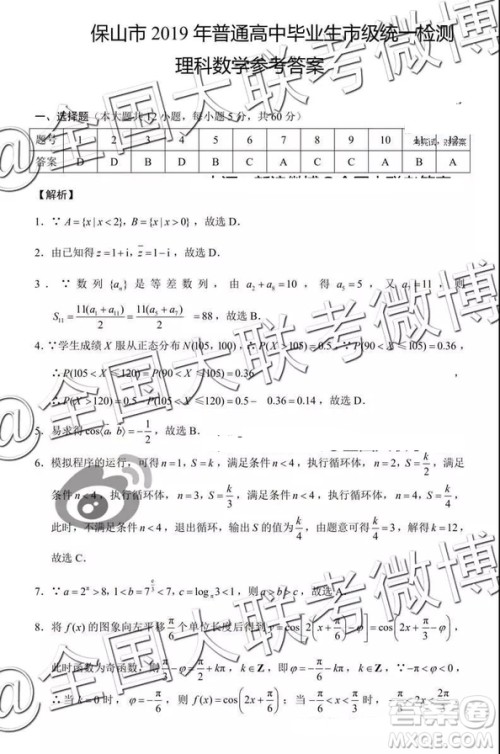 保山市2019年普通高中毕业生市级统一检测
理科数学参考答案
一、选择题（本大题共12小题，每小题5分，共60分）
题号 1 2 3 4 5 6 7 8 9 10 12
答案 D D B B B C A C C A B A
【解析】
1．∵A={x|x<2}，B={x|x>0}，故选D．
2．由已知得z=1+i，z̄=1−i，故选D．
3．∵数列{aₙ}是等差数列，由a₂+a₈=10，得a₅=5，又a₇=11，则
S₁₁=11(a₁+a₁₁)/2=11(a₅+a₇)/2=88，故选B．
4．∵学生成绩X服从正态分布N(105，100)，∴P(X>105)=0.5 ∵P(90<X≤105)=0.36
∴P(105<X≤120)=P(90<X≤105)=0.36
∴P(X>120)=0.5−P(105<X≤120)=0.5−0.36=0.14，故选B．
5．易求得cos⟨a，b⟩=−1/2，故选B．
6．模拟程序的运行，可得n=1，S=k，满足条件n<4，执行循环体，n=2，S=k−k/2=k/2，满足
条件n<4，执行循环体，n=3，S=k/3，满足条件n<4，执行循环体，n=4，S=k/4，
此时，不满足条件n<4，退出循环，输出S的值为k/4，由题意可得k/4=3，解得k=12，
故选C．
7．∵a=2^π>8，1<b=7 <7，c=log 3<1，则a>b>c，故选A．
8．将f(x)的图象向左平移π/6个单位长度后得到y=cos[2(x+π/6)−φ]=cos(2x+π/3−φ)，
此时函数为奇函数，则π/3−φ=π/2+kπ，k∈Z，即φ=−π/6−kπ，k∈Z，∵−π<φ<0，
∴当k=0时，φ=−π/6，则f(x)=cos(2x+π/6)；当−π/6<x<π/3时，−π/6<2x+π/6
@全国大联考微博
@全国大联考微博
@全国大联考微博
答案圈
MXQE.COM